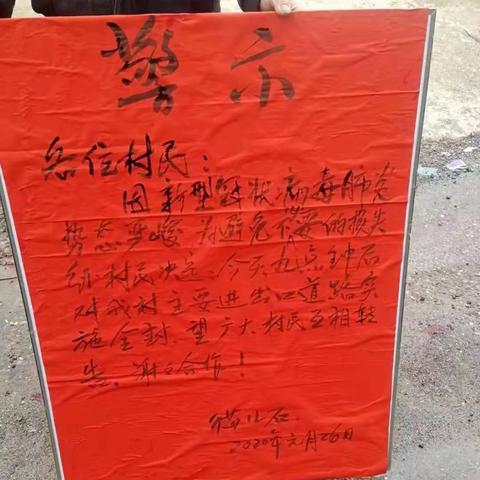 警示
各位村民:
因新型冠状病毒肺炎
势态严峻,为避免不必要的损失
经村民决定,今天九点钟后
对我村主要进出口道路实
施全封,望广大村民互相转
告,谢之合作!
猫儿石
2020年元月26日